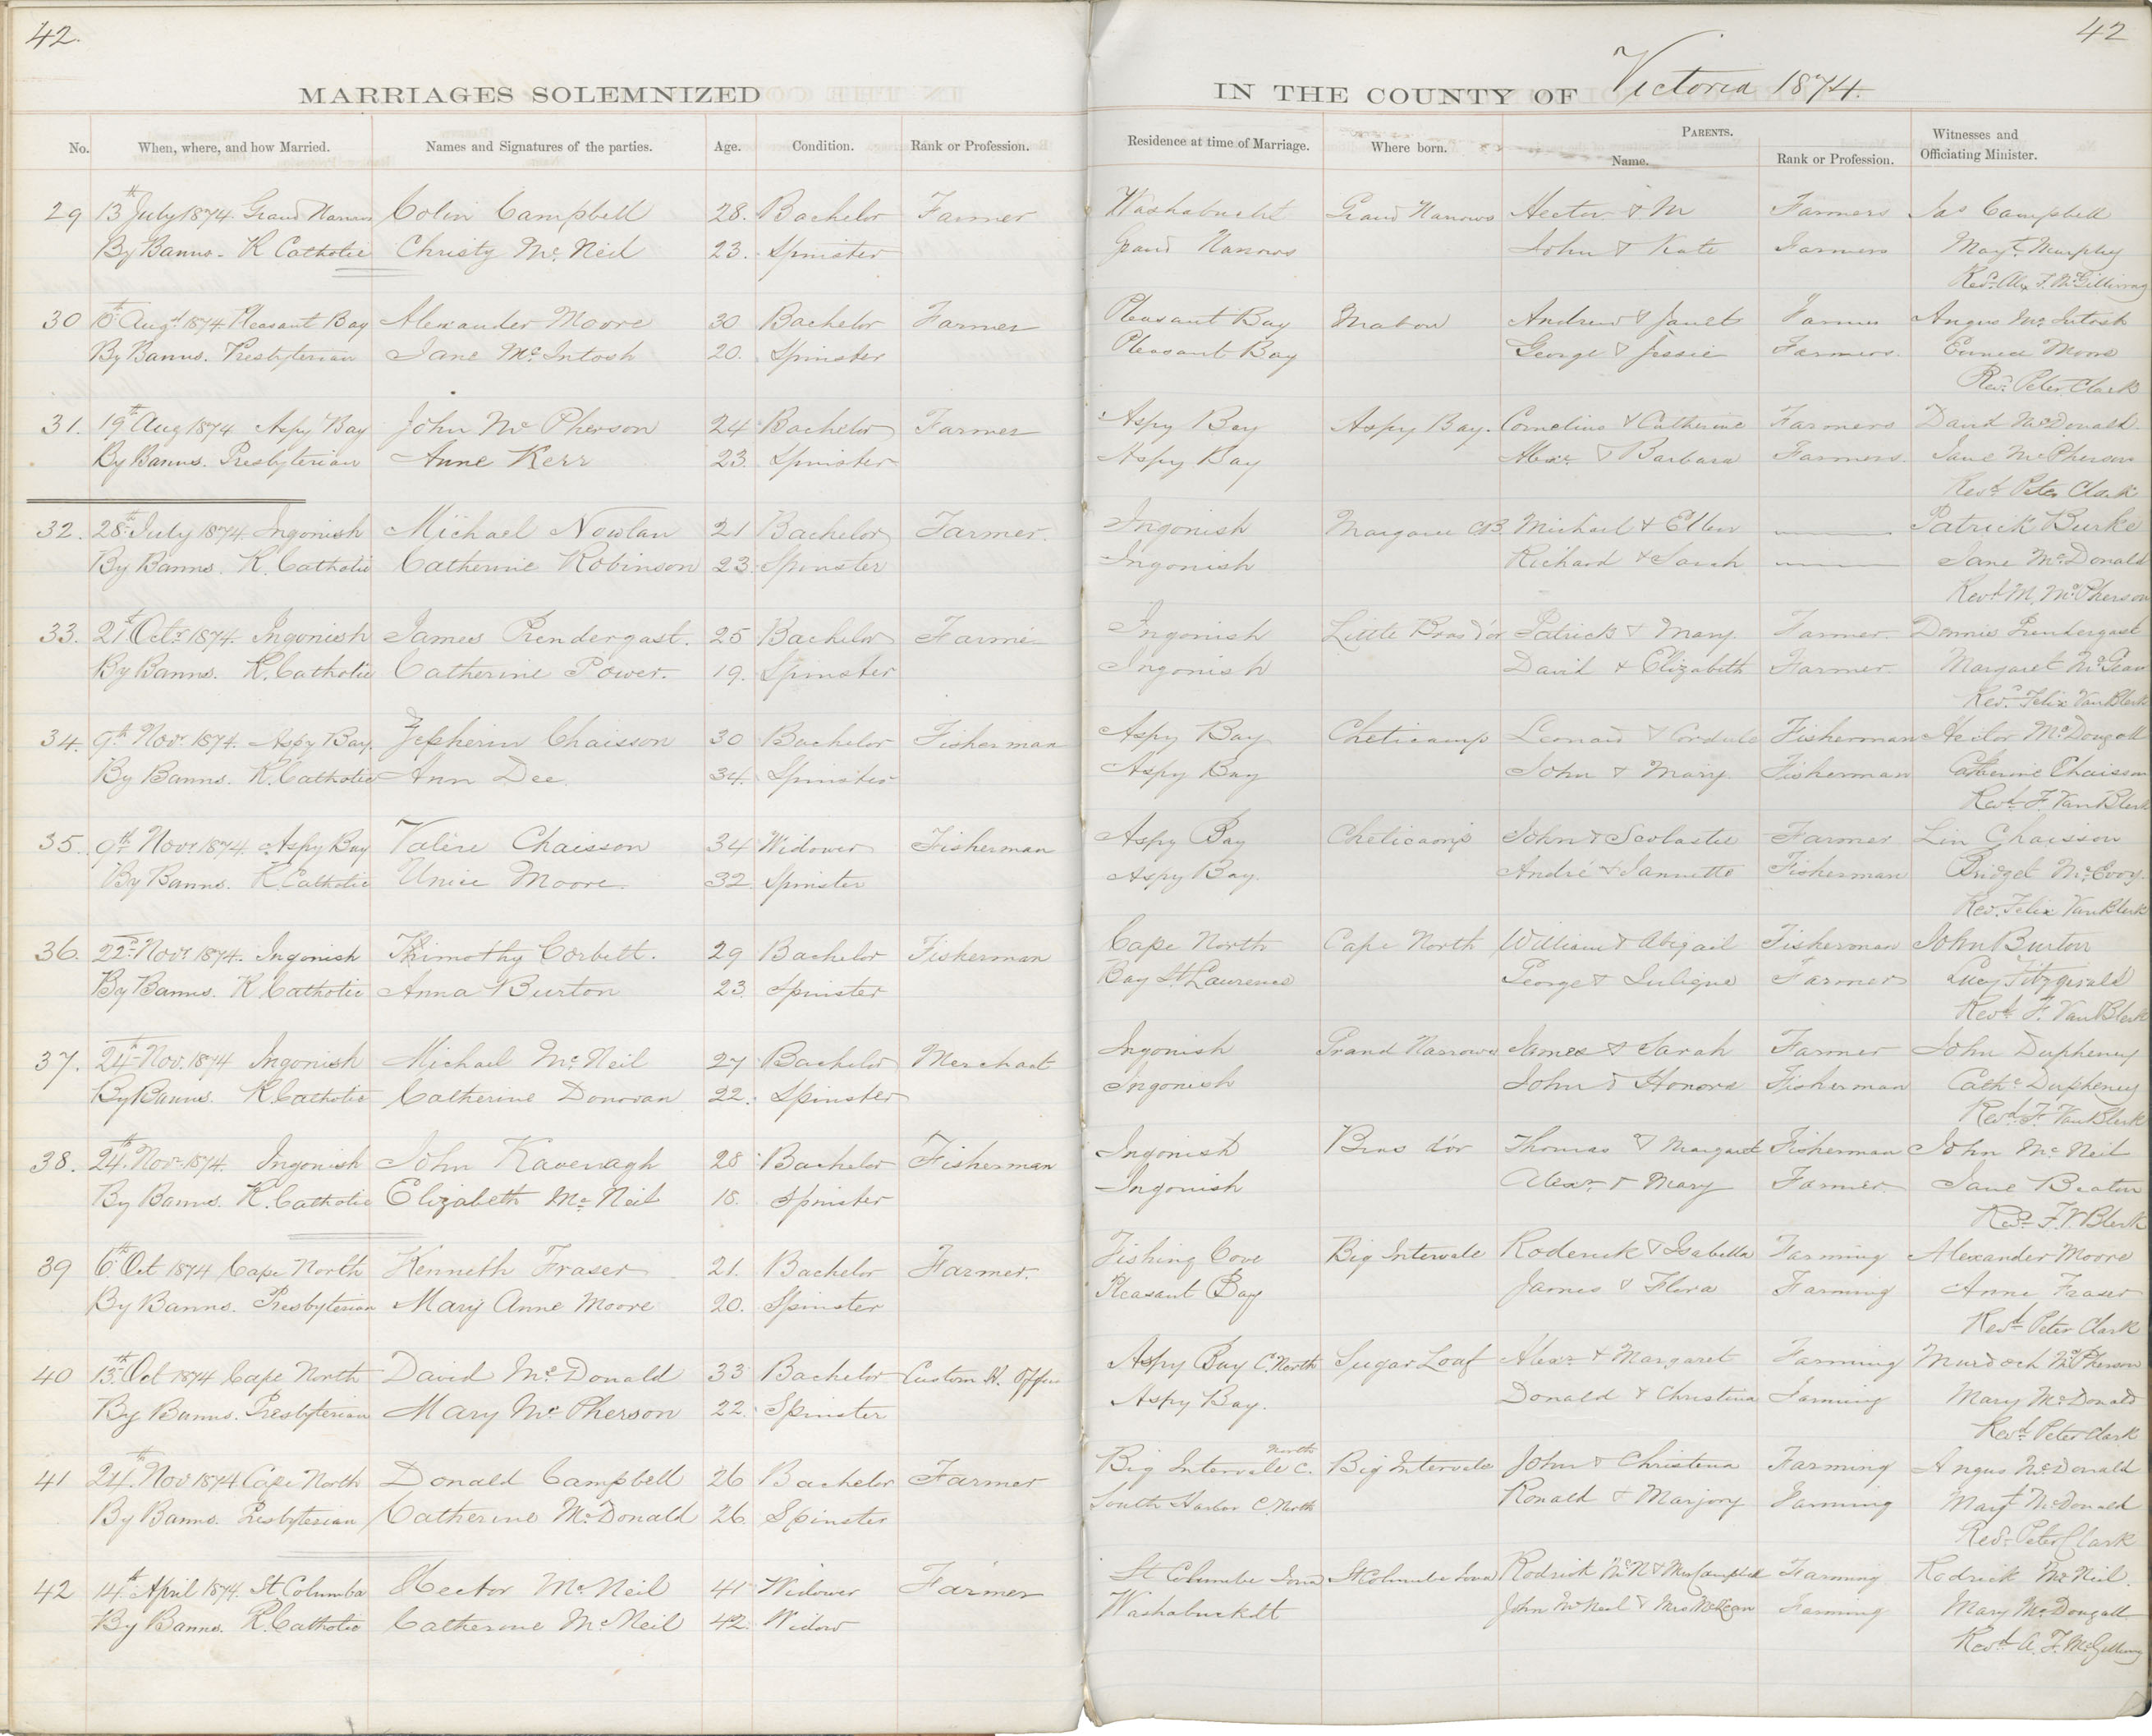 42.
42
MARRIAGES SOLEMNIZED
IN THE COUNTY OF Victoria 1874.
No. When, where, and how Married. Names and Signatures of the parties. Age. Condition. Rank or Profession. Residence at time of Marriage. Where born. PARENTS. Name. Rank or Profession. Witnesses and Officiating Minister.
29 13th July 1874. Grand Narrows Colin Campbell 28. Bachelor Farmer Washabuckt Grand Narrows Hector & M Farmers Jas Campbell
By Banns. R Catholic Christy Mc Neil 23. Spinister Grand Narrows John & Kate Farmers Mayt Murphy
Revd. Alex F. McGillivray
30 10th Augt 1874 Pleasant Bay Alexander Moore 30 Bachelor Farmer Pleasant Bay Mabou Andrew & Janet Farmer Angus Mc Intosh
By Banns. Presbyterian Jane Mc Intosh 20. Spinster Pleasant Bay George & Jessie Farmers. Moore
Revd. Peter Clark
31. 19th Aug 1874 Aspy Bay John Mc Pherson 24 Bachelor Farmer Aspy Bay Aspy Bay. Cornelius & Catherine Farmers David McDonald
By Banns. Presbyterian Anne Kerr 23. Spinister Aspy Bay Alexr & Barbara Farmers. Jane McPherson
Revd. Peter Clark
32. 28th July 1874. Ingonish Michael Nowlan 21 Bachelor Farmer. Ingonish Margaree CB. Michael & Ellen Patrick Burke
By Banns. R. Catholic Catherine Robinson 23. Spinster Ingonish Richard & Sarah Jane McDonald
Revd M. McPherson
33. 21st Octr 1874. Ingonish James Prendergast. 25 Bachelor Farmer Ingonish Little Bras d'or Patrick & Mary Farmer. Dennis Prendergast
By Banns. R. Catholic Catherine Power. 19. Spinster Ingonish David & Elizabeth Farmer. Margaret
Revd. Felix Van Blerk
34. 9th Novr 1874. Aspy Bay. Zepherin Chaisson 30 Bachelor Fisherman Aspy Bay Cheticamp Leonard & Cordule Fisherman Hector McDougall
By Banns. R. Catholic Ann Dee 34. Spinister Aspy Bay John & Mary Fisherman Catherine Chaisson
Revd. F. Van Blerk
35. 9th Novr 1874. Aspy Bay Valere Chaisson 34 Widower Fisherman Aspy Bay Cheticamp John & Scolastie Farmer Lin Chaisson
By Banns. R. Catholic Unice Moore. 32. Spinster Aspy Bay. André & Jannette Fisherman Bridget McEvoy.
Rev. Felix Van Blerk
36. 22nd Novr 1874. Ingonish Thimothy Corbett. 29 Bachelor Fisherman Cape North Cape North William & Abigail Fisherman John Burton
By Banns. R Catholic Anna Burton 23. Spinister Bay St. Laurence George & Farmer Lucy Fitzgerald
Revd. F. Van Blerk
37. 24th Nov. 1874 Ingonish Michael Mc Neil 27 Bachelor Merchant Ingonish Grand Narrows James & Sarah Farmer John Dupheney
By Banns. R. Catholic Catherine Donovan 22. Spinster Ingonish John & Honora Fisherman Cathe Dupheney
Revd. F. Van Blerk
38. 24th Novr 1874. Ingonish John Kavenagh 28 Bachelor Fisherman Ingonish Bras d'or Thomas & Margaret Fisherman John Mc Neil
By Banns. R. Catholic Elizabeth Mc Neil 18. Spinster Ingonish Alexr & Mary Farmer. Jane Beaton
Revd. F. V. Blerk
39 6th Oct 1874 Cape North Kenneth Fraser 21. Bachelor Farmer. Fishing Cove Big Intervale Roderick & Isabella Farming Alexander Moore
By Banns. Presbyterian Mary Anne Moore 20. Spinster Pleasant Bay James & Flora Farming Anne Fraser
Revd Peter Clark
40 13th Oct 1874 Cape North David Mc Donald 33 Bachelor Custom H. Offcr Aspy Bay C. North Sugar Loaf Alexr & Margaret Farming Murdoch McPherson
By Banns. Presbyterian Mary Mc Pherson 22. Spinster Aspy Bay. Donald & Christina Farming Mary McDonald
Revd Peter Clark
41 24th Nov 1874 Cape North Donald Campbell 26 Bachelor Farmer Big Intervale C. North Big Intervale John & Christena Farming Angus McDonald
By Banns. Presbyterian Catherine McDonald 26. Spinster South Harbor C. North Ronald & Marjory Farming Mayt McDonald
Revd. Peter Clark
42 14th April 1874. St Columba Hector Mc Neil 41 Widower Farmer St Columba Iona St Columba Iona Rodrick McN & Mrs Campbell Farming Rodrick Mc Neil.
By Banns. R. Catholic Catherine McNeil 42. Widow Washabucktt John McNeil & Mrs McLean Farming Mary McDougall
Revd A. F. McGillivray